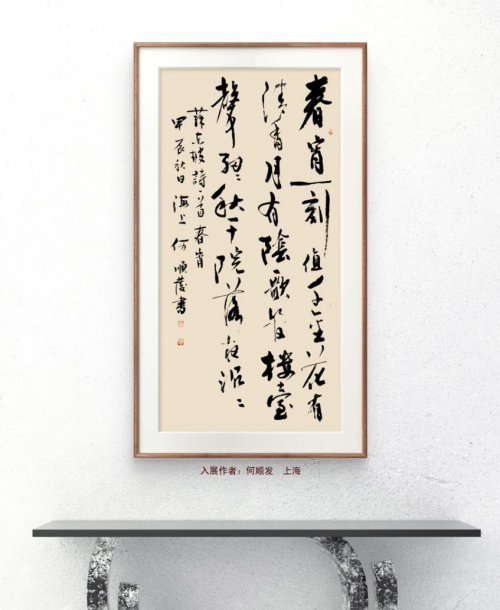 春宵一刻值千金花有
清香月有陰歌管樓臺
聲細〻秋千院落夜沉〻
蘇東坡詩一首春宵
甲辰秋日海上何順發書
入展作者：何顺发 上海